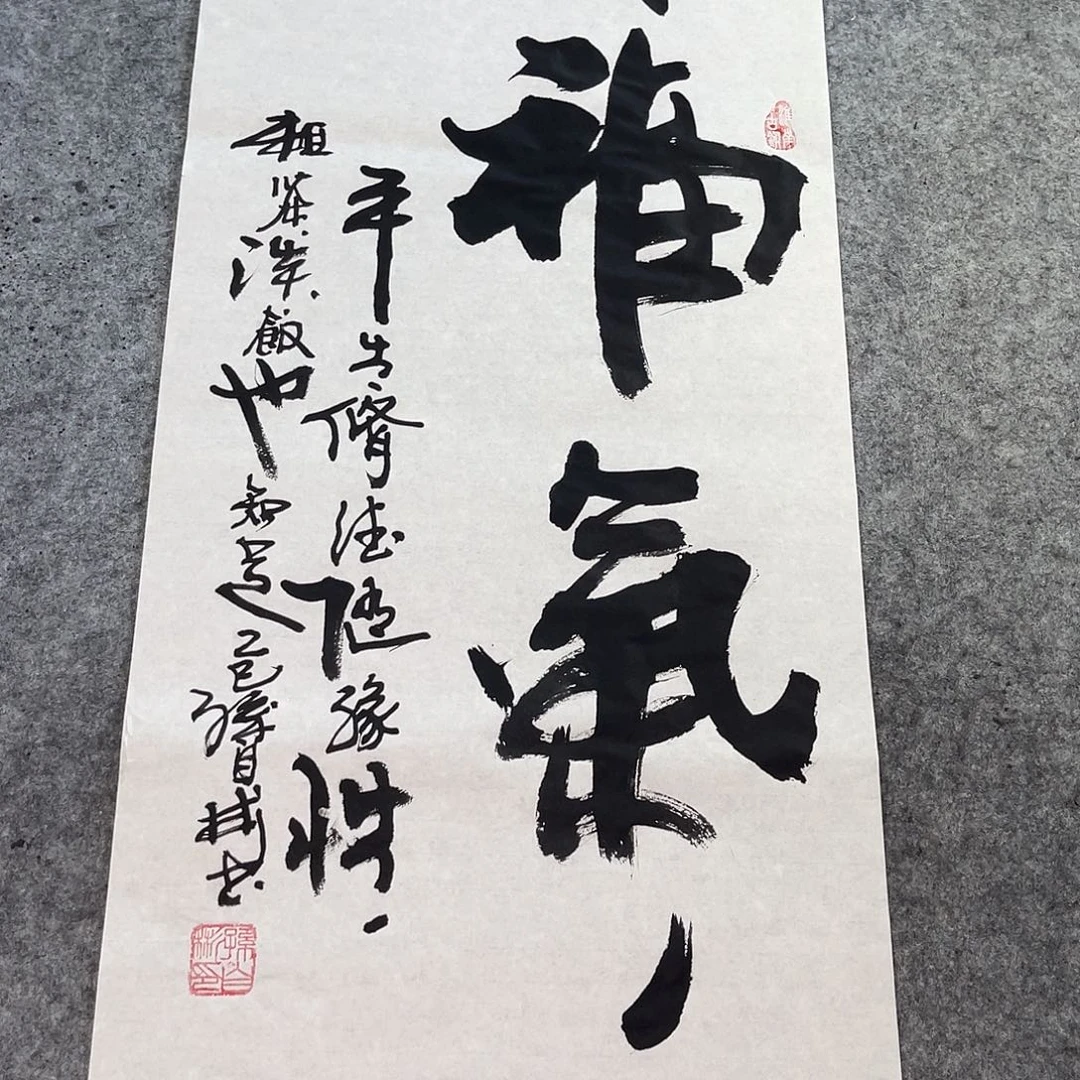 福氣
平生修德隨緣性
粗茶淡飯也知足 乙巳 書